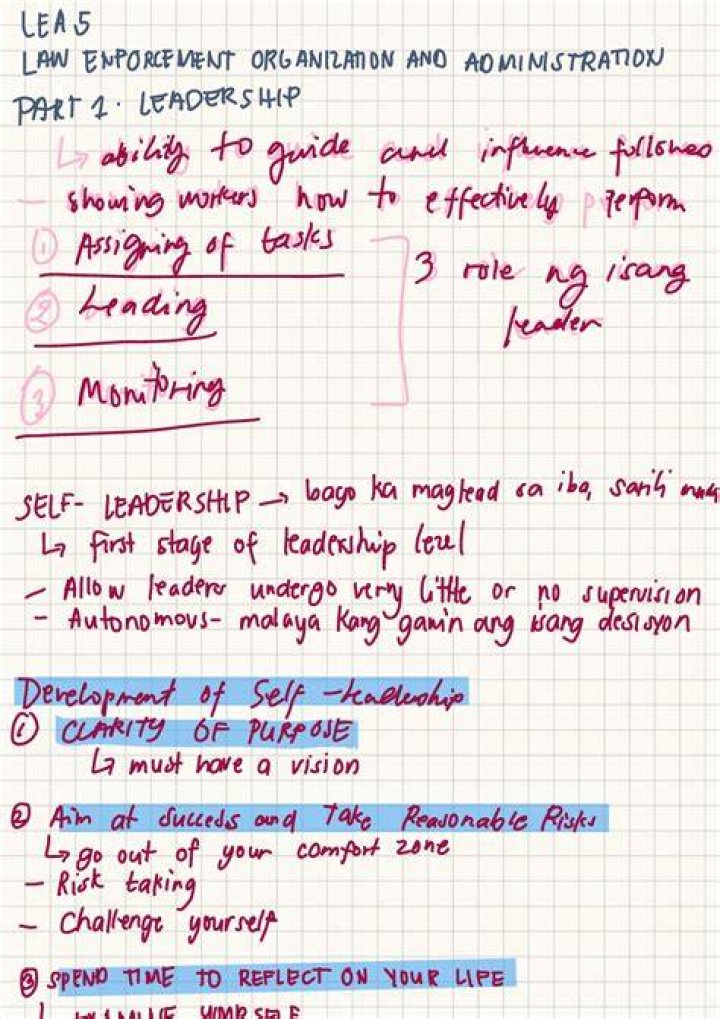 LEA 5
LAW ENFORCEMENT ORGANIZATION AND ADMINISTRATION
PART 1. LEADERSHIP
↳ ability to guide and influence
- showing workers how to effectively perform
① Assigning of tasks
3 role ng isang
leader
② Leading
③ Monitoring
SELF-LEADERSHIP → bago ka maglead sa iba, sarili
↳ first stage of leadership level
- Allow leaders undergo very little or no supervision
- Autonomous- malaya kang gawin ang isang desisyon
Development of Self-leadership
① CLARITY OF PURPOSE
↳ must have a vision
② Aim at success and Take Reasonable Risks
↳ go out of your comfort zone
- Risk taking
- Challenge yourself
③ SPEND TIME TO REFLECT ON YOUR LIFE